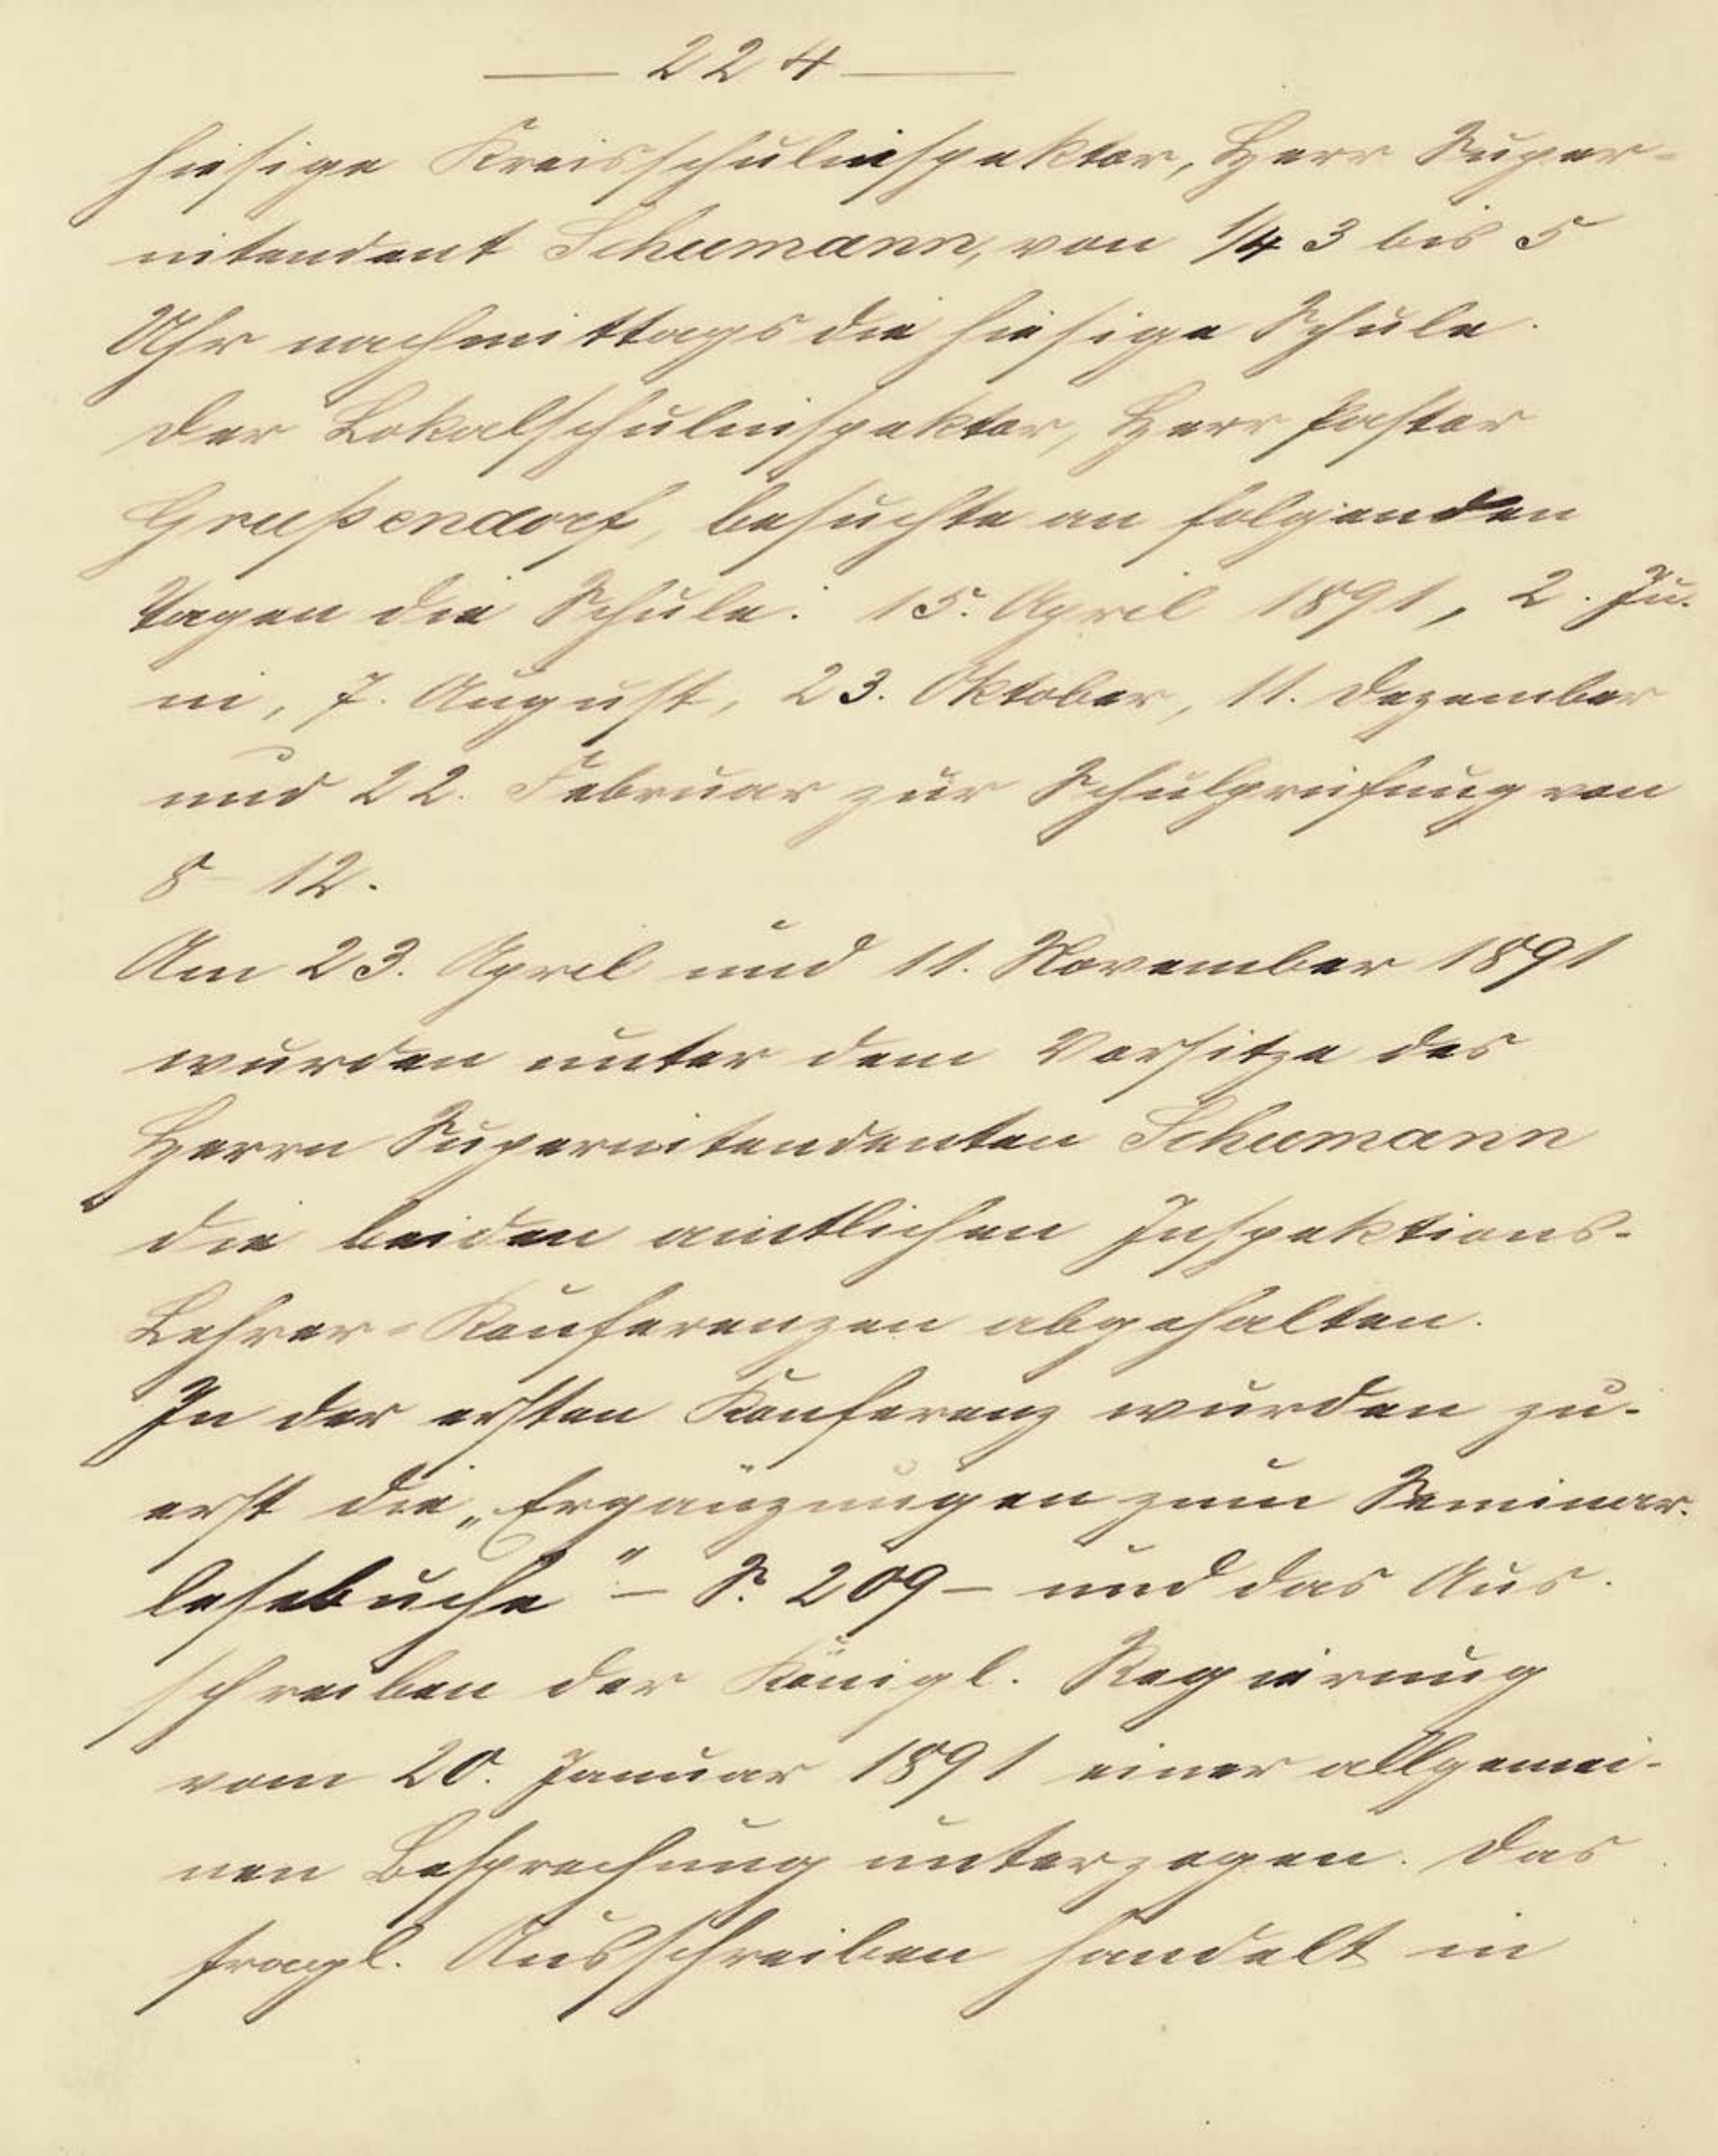 — 224 —
hiesige Kreisschulinspektor, Herr Super-
intendent Schumann, von 1/4 3 bis 5
Uhr nachmittags die hiesige Schule.
Der Lokalschulinspektor, Herr Pastor
Grußendorf, besuchte an folgenden
Tagen die Schule: 15. April 1891, 2. Ju-
ni, 7. August, 23. Oktober, 11. Dezember
und 22. Februar zur Schulprüfung von
8 - 12.
Am 23. April und 11. November 1891
wurden unter dem Vorsitze des
Herrn Superintendenten Schumann
die beiden amtlichen Inspektions-
Lehrer-Konferenzen abgehalten.
In der ersten Konferenz wurden zu-
erst die „Ergänzungen zum Seminar-
lesebuche" - S. 209 - und das Aus-
schreiben der Königl. Regierung
vom 20. Januar 1891 einer allgemei-
nen Besprechung unterzogen. Das
fragl. Ausschreiben handelt in